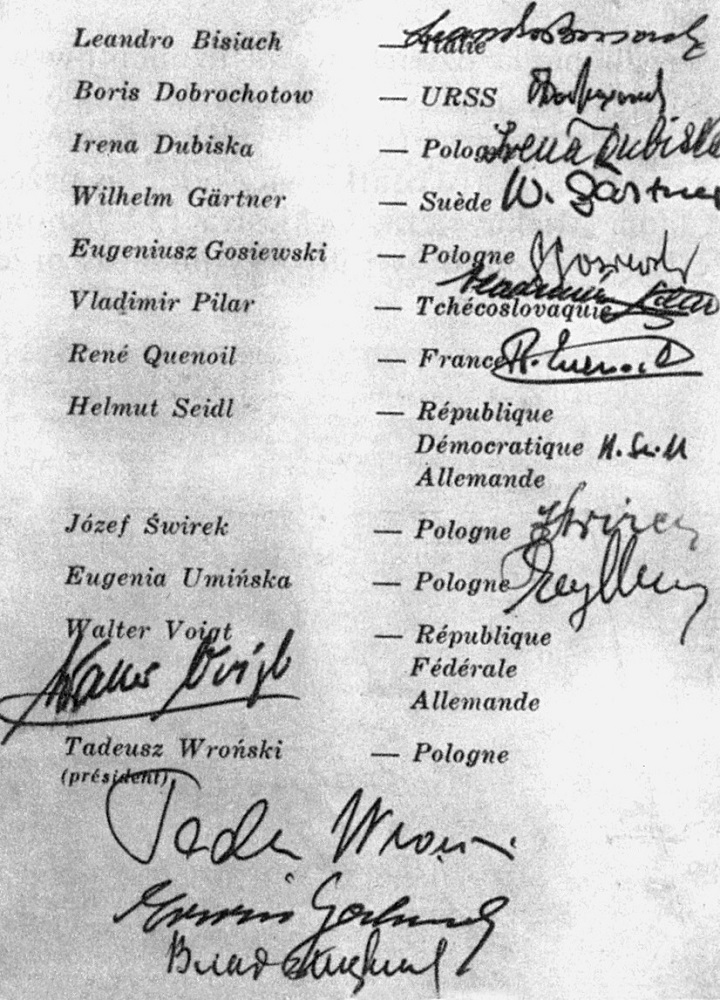 Leandro Bisiach — Italie
Boris Dobrochotow — URSS
Irena Dubiska — Pologne Irena Dubiska
Wilhelm Gärtner — Suède W. Gärtner
Eugeniusz Gosiewski — Pologne
Vladimir Pilar — Tchécoslovaquie Vladimir Pilar
René Quenoil — France R. Quenoil
Helmut Seidl — République
Démocratique H. Seidl
Allemande
Józef Świrek — Pologne
Eugenia Umińska — Pologne
Walter Voigt — République
Fédérale
Walter Voigt Allemande
Tadeusz Wroński — Pologne
(président)